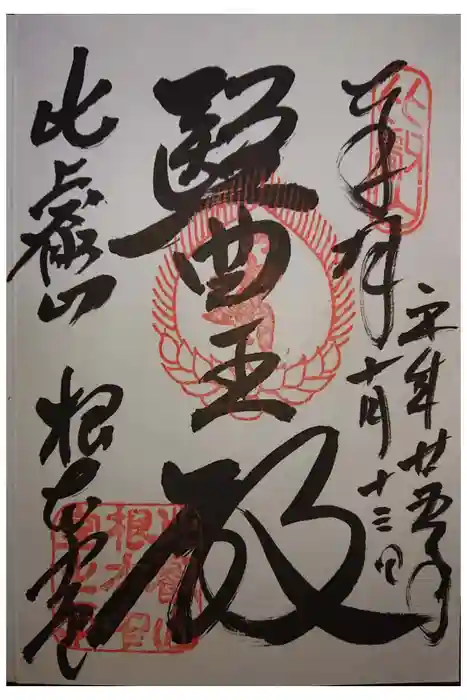 奉拝
平成廿五年
十月十三日
醫王殿
比叡山
根本中堂
比叡山